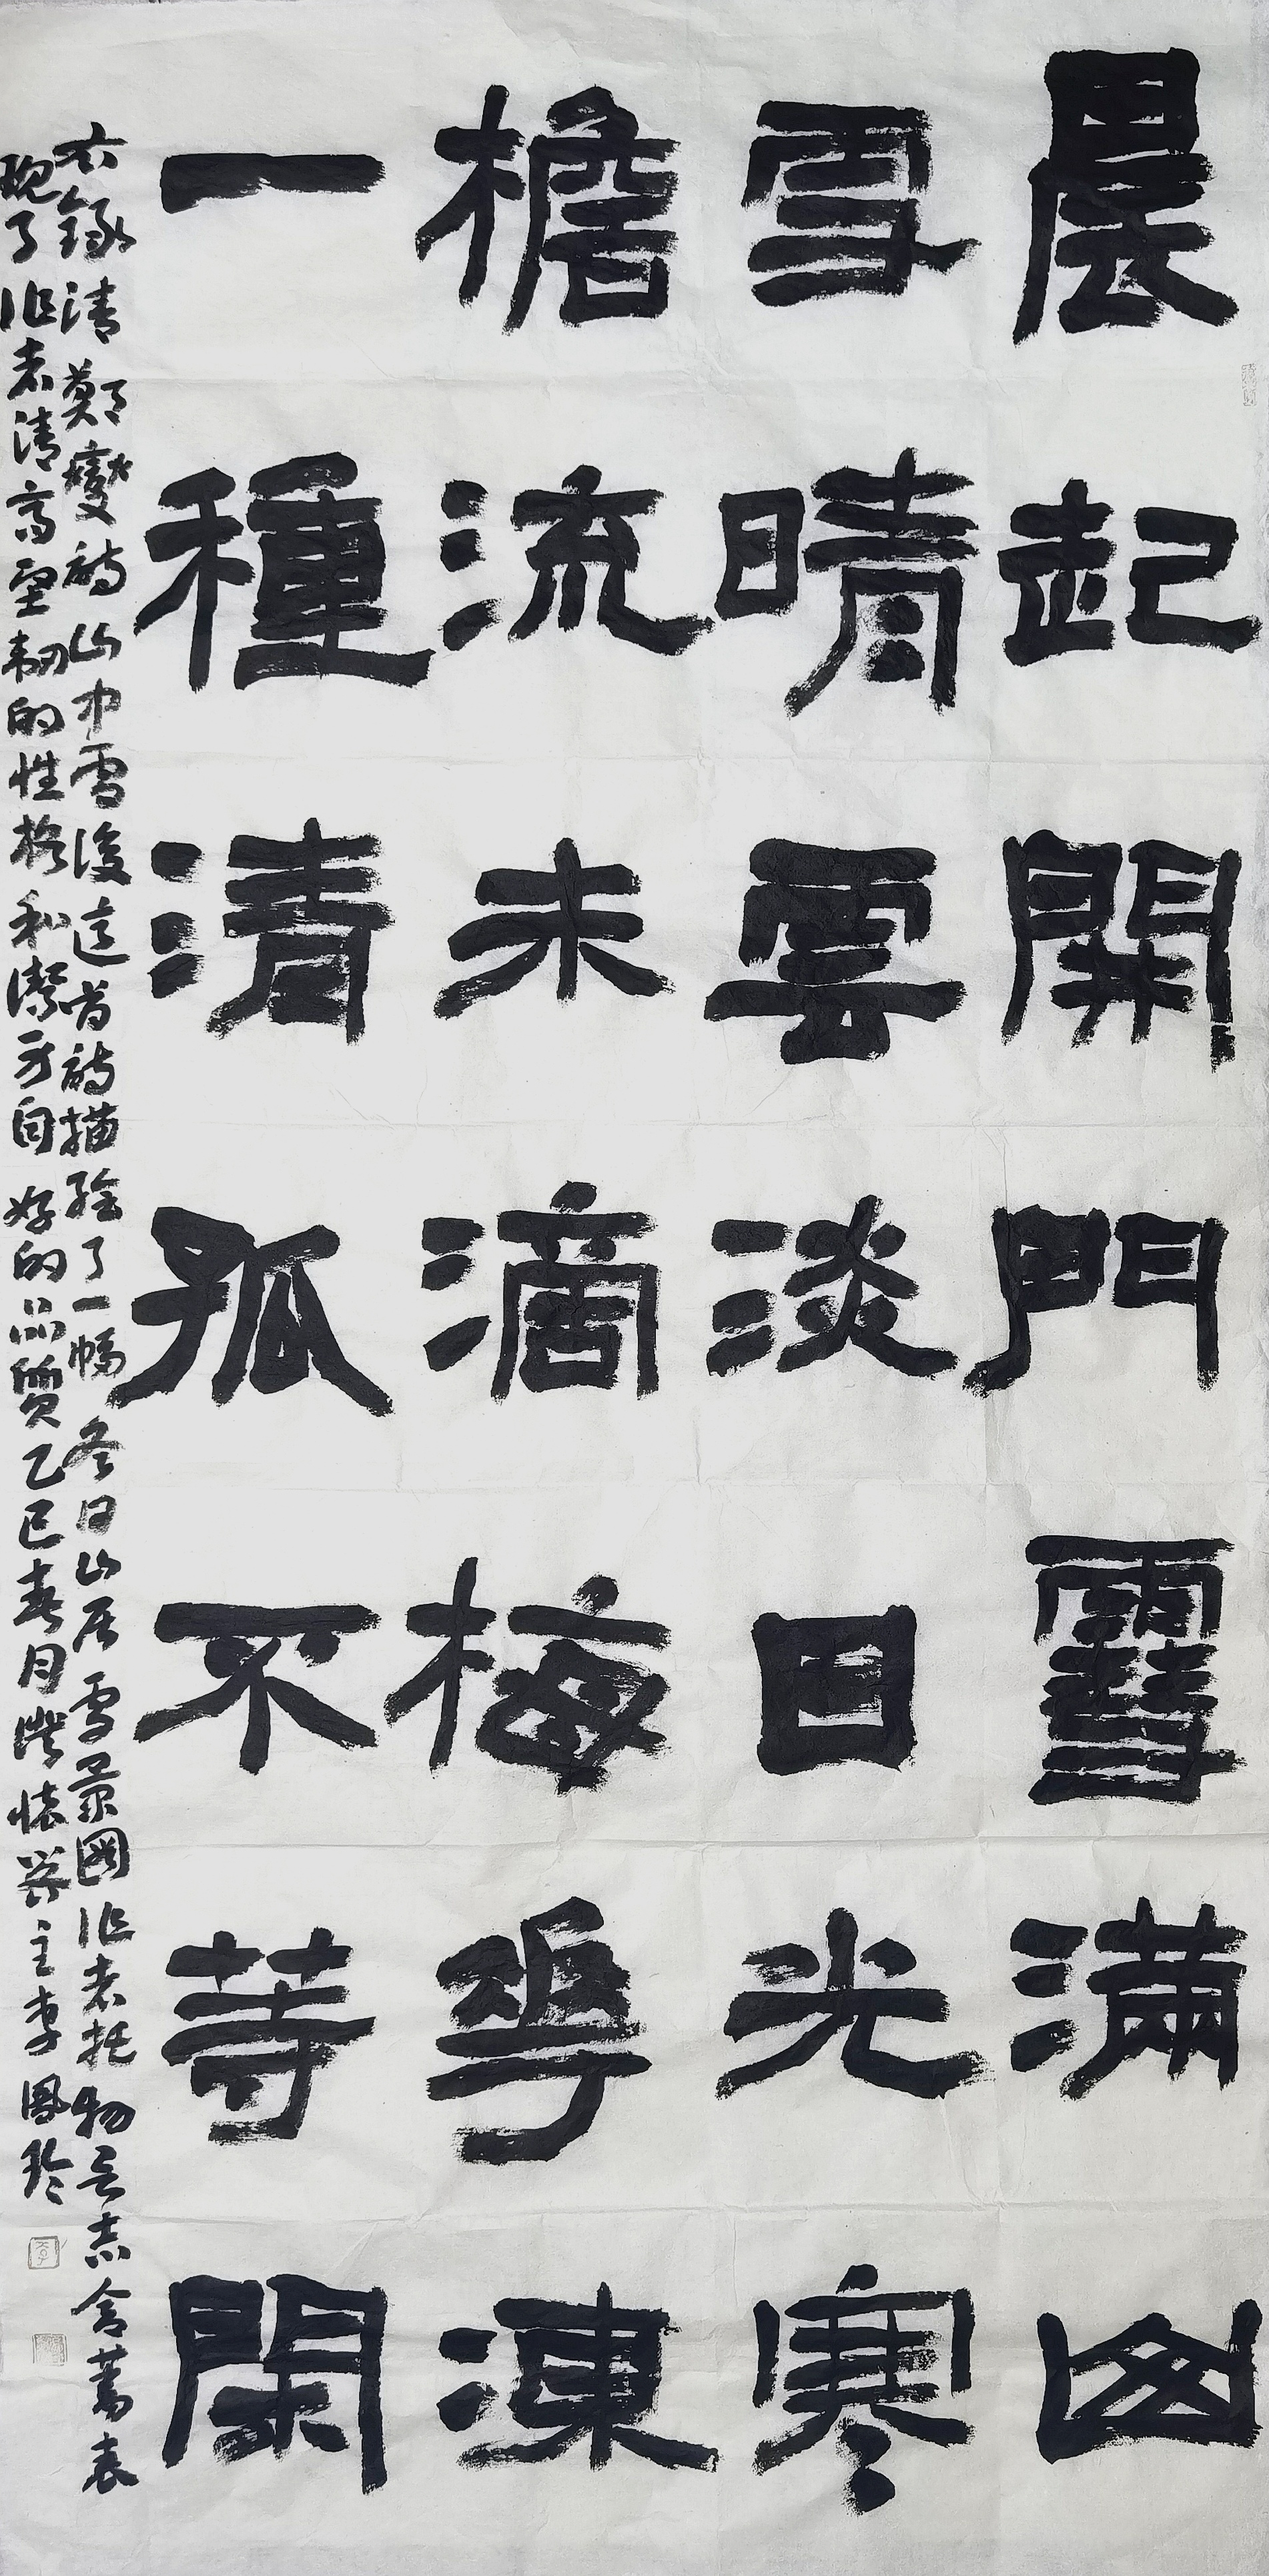 晨起開門雪滿山
雪晴雲淡日光寒
檐流未滴梅華凍
一種清孤不等閑
右錄清鄭燮詩山中雪後這首詩描繪了一幅冬日山居雪景圖作者托物言志含蓄表
現了作者清高堅韌的性格和潔身自好的品質乙巳春月澄懷齋主李鳳玲